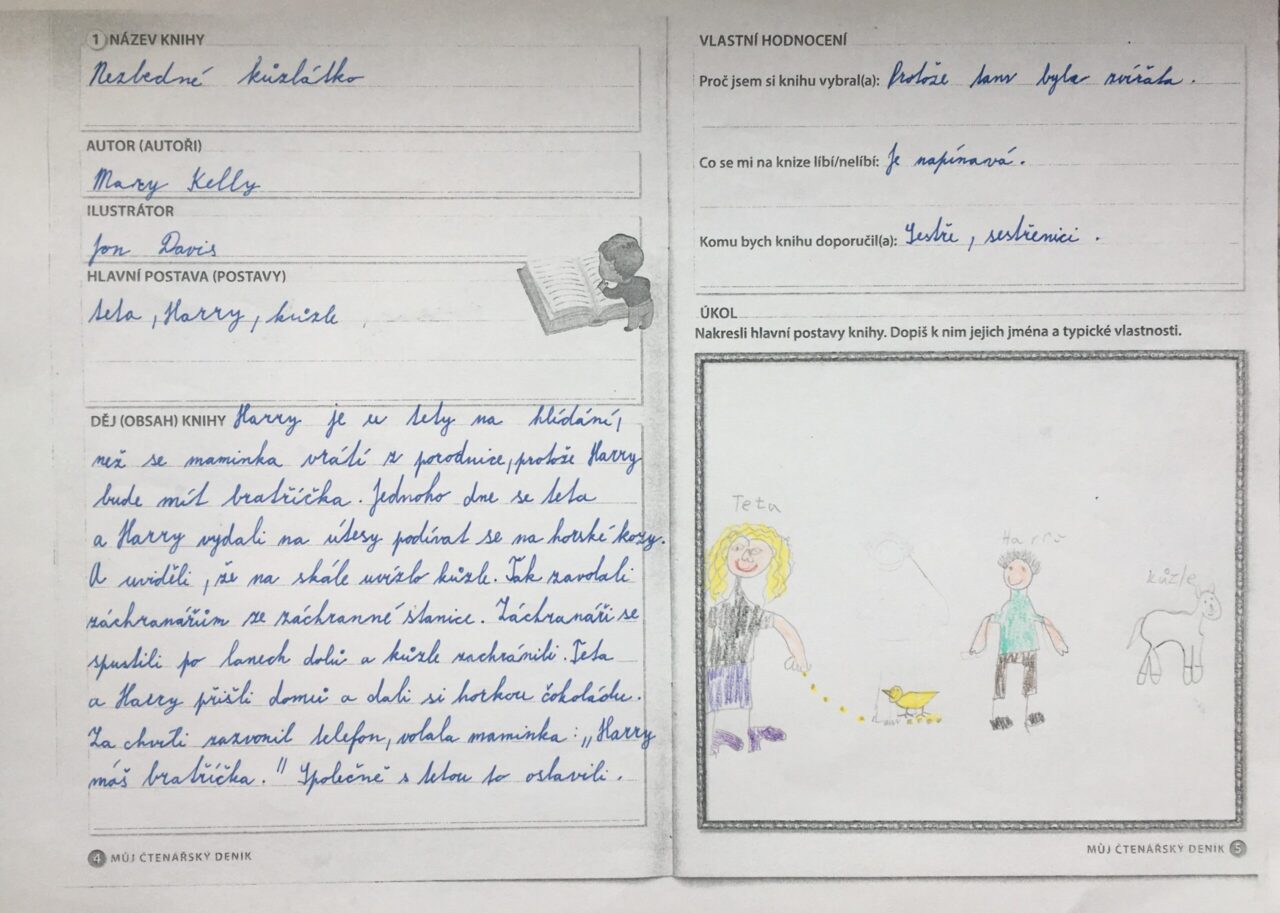 1 NÁZEV KNIHY
Nezbedné kůzlátko
AUTOR (AUTOŘI)
Mary Kelly
ILUSTRÁTOR
Jon Davis
HLAVNÍ POSTAVA (POSTAVY)
teta, Harry, kůzle
DĚJ (OBSAH) KNIHY Harry je u tety na hlídání,
než se maminka vrátí z porodnice, protože Harry
bude mít bratříčka. Jednoho dne se teta
a Harry vydali na útesy podívat se na horské kozy.
A uviděli, že na skále uvízlo kůzle. Tak zavolali
záchranářům ze záchranné stanice. Záchranáři se
spustili po lanech dolů a kůzle zachránili. Teta
a Harry přišli domů a dali si horkou čokoládu.
Za chvíli zazvonil telefon, volala maminka: „Harry
máš bratříčka." Společně s tetou to oslavili.
4 MŮJ ČTENÁŘSKÝ DENÍK
VLASTNÍ HODNOCENÍ
Proč jsem si knihu vybral(a): Protože tam byla zvířata.
Co se mi na knize líbí/nelíbí: Je napínavá.
Komu bych knihu doporučil(a): Sestře, sestřenici.
ÚKOL
Nakresli hlavní postavy knihy. Dopiš k nim jejich jména a typické vlastnosti.
Teta
Harry
kůzle
MŮJ ČTENÁŘSKÝ DENÍK 5